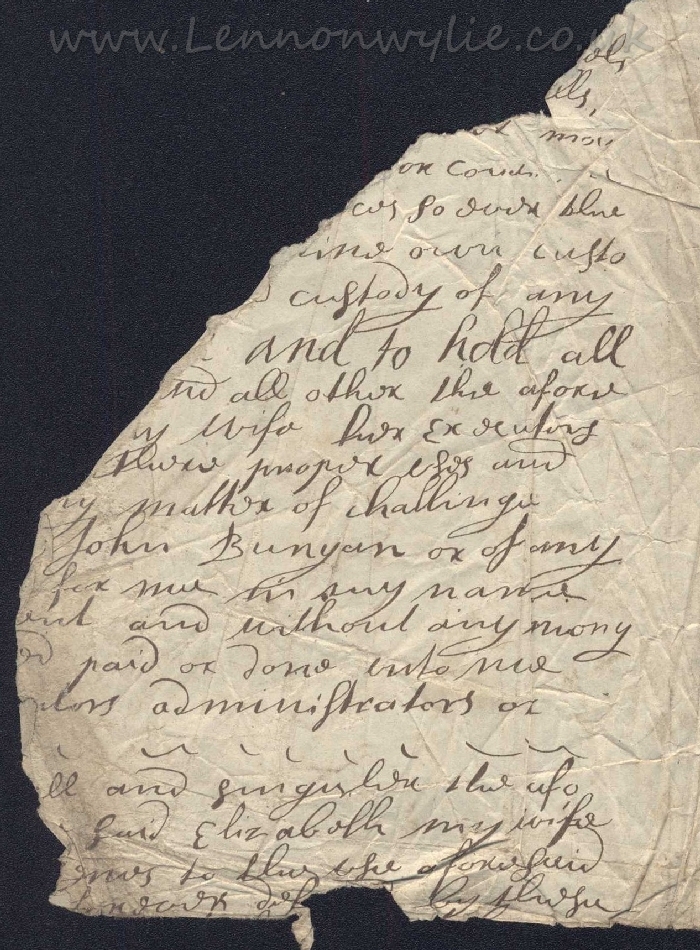 www.Lennonwylie.co.uk
or mov
or cond
cos so ever the
ine own custo
custody of any
and to hold all
nd all other the afore
y wife her Executors
there proper uses and
ny matter of challinge
John Bunyan or of any
for me in my name
ent and without any mony
ed paid or done unto me
utors administrators or
ll and singuler the afo
said Elizabeth my wife
emes to the use aforesaid
by these